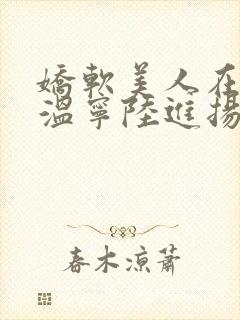 嬌軟美人在
溫寧陸進揚
春木涼蕭